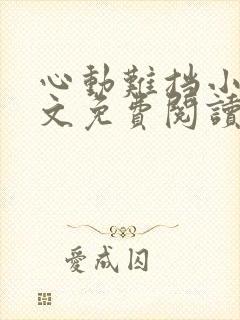 心動難挡小
文免費閱讀
愛成囚